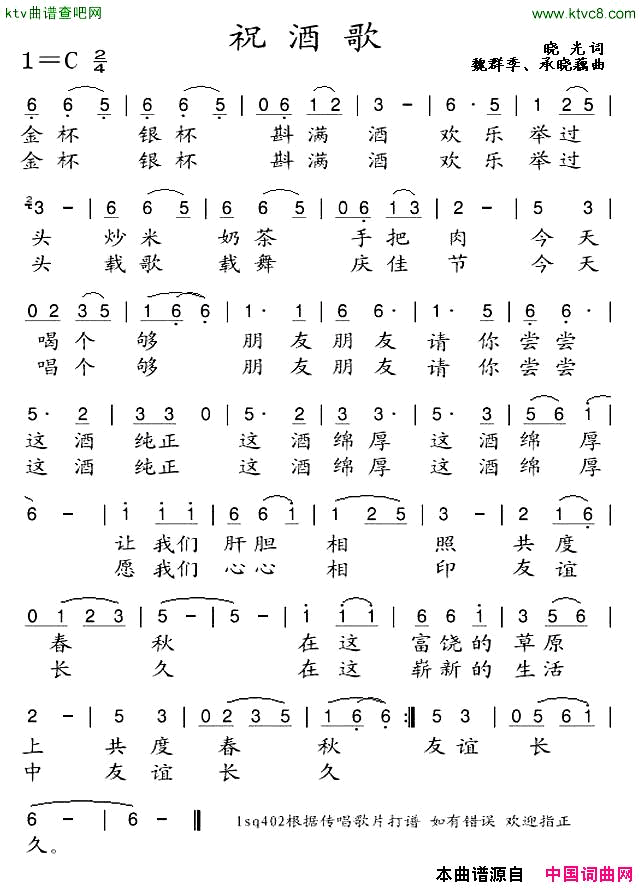 ktv曲谱查吧网 www.ktvc8.com
祝酒歌
1=C 2/4
晓光词
魏群季、承晓藕曲
6 6 5 | 6 6 5 | 0 6 1 2 | 3 - | 6 5 | 1 2 5 |
金杯 银杯 斟满 酒 欢乐 举过
金杯 银杯 斟满 酒 欢乐 举过
2/4 3 - | 6 6 5 | 6 6 5 | 0 6 1 3 | 2 - | 5 3 |
头 炒米 奶茶 手把 肉 今天
头 载歌 载舞 庆佳 节 今天
0 2 3 5 | 1 6 6 | 1· 1 | 6 6· | 1· 5 | 6 6· |
喝个 够 朋友 朋友 请你 尝尝
唱个 够 朋友 朋友 请你 尝尝
5· 2 | 3 3 0 | 5· 2 | 3 3· | 5· 2 | 5 6 1 |
这酒 纯正 这酒 绵厚 这酒 绵厚
这酒 纯正 这酒 绵厚 这酒 绵厚
6 - | 1 1 1 | 6 6 1 | 1 2 5 | 3 - | 2 1 6 |
让我们 肝胆 相 照 共度
愿我们 心心 相 印 友谊
0 1 2 3 | 5 - | 5 - | 1 1 1 | 6 6 1 | 3 5 |
春 秋 在这 富饶的 草原
长 久 在这 崭新的 生活
2 - | 5 3 | 0 2 3 5 | 1 6 6 :| 5 3 | 0 5 6 1 |
上 共度 春 秋 友谊 长
中 友谊 长 久
6 - | 6 - ‖ 1sq402根据传唱歌片打谱 如有错误 欢迎指正
久。
本曲谱源自 中国词曲网